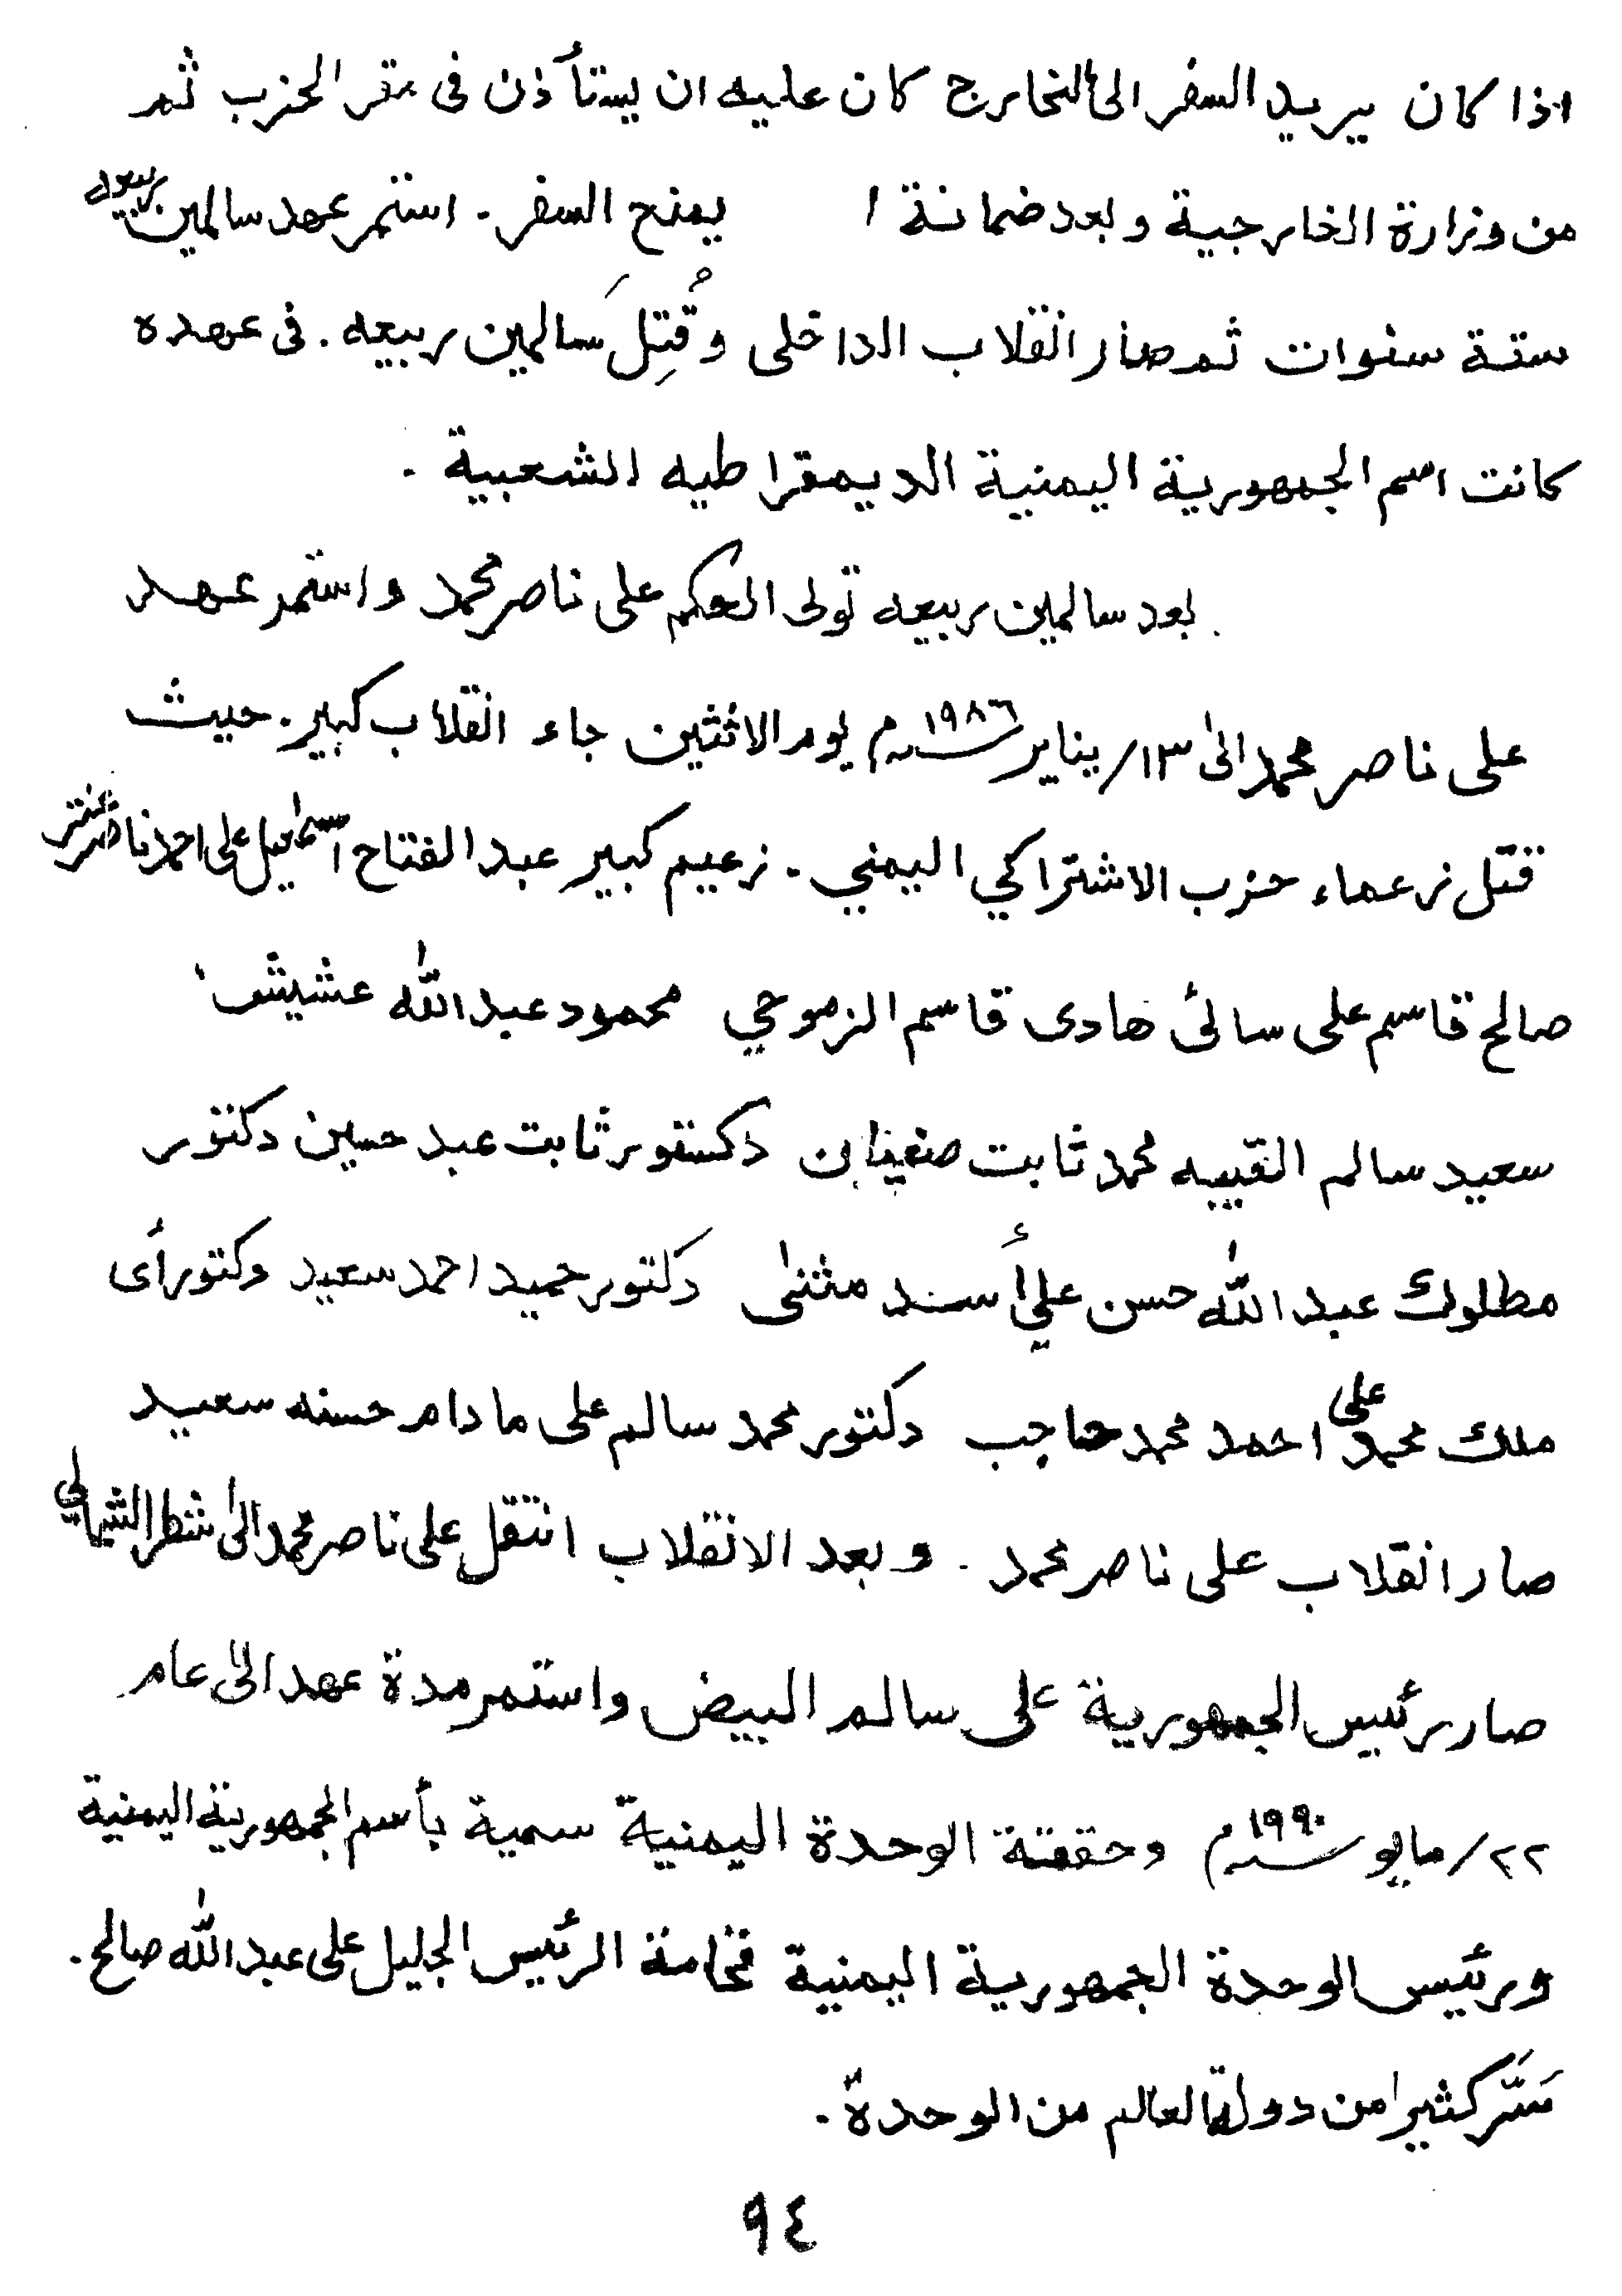 اذا كان يريد السفر الى الخارج كان عليه ان يستأذن فى مقر الحزب ثم
من وزارة الخارجية وبعد ضمانة ا يمنح السفر. استمر عهد سالمين ربيعه
ستة سنوات ثم صار انقلاب الداخلى وقُتِلَ سالمين ربيعه. فى عهده
كانت اسم الجمهورية اليمنية الديمقراطيه الشعبية.
بعد سالمين ربيعه تولى الحكم على ناصر محمد واستمر عهد
على ناصر محمد الى ١٣/يناير سنة ١٩٨٦م يوم الاثنين جاء انقلاب كبير. حيث
قتل زعماء حزب الاشتراكي اليمني. زعيم كبير عبد الفتاح اسمٰعيل على احمد ناصر عنتر
صالح قاسم على سائى هادى قاسم الزموحي محمود عبد الله عشيش
سعيد سالم النقيبه محمد ثابت صنعيان دكتور ثابت عبد حسين دكتور
مطلوك عبد الله حسن علي أسند مثنى دكتور حميد احمد سعيد دكتور أى
ملك محمد على احمد محمد حاجب دكتور محمد سالم على مادام حسنه سعيد
صار انقلاب على ناصر محمد. وبعد الانقلاب انتقل على ناصر محمد الى شطر الشمالي
صار رئيس الجمهورية على سالم البيض واستمر مدة عهد الى عام
٢٢/مايو سنة ١٩٩٠م وحققة الوحدة اليمنية سمية بأسم الجمهورية اليمنية
ورئيس الوحدة الجمهورية اليمنية فخامة الرئيس الجليل على عبد الله صالح.
سَتَر كثيرا من دولة العالم من الوحدة.
٩٤